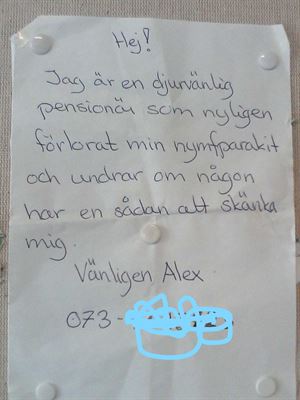 Hej!
Jag är en djurvänlig
pensionär som nyligen
förlorat min nymfparakit
och undrar om någon
har en sådan att skänka
mig.
Vänligen Alex
073-